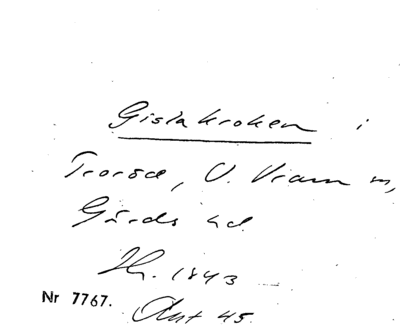 Gislakroken i
Troröd, V. Vram m,
Gärds hd
Hr. 1843
Nr 7767. Ant 45.